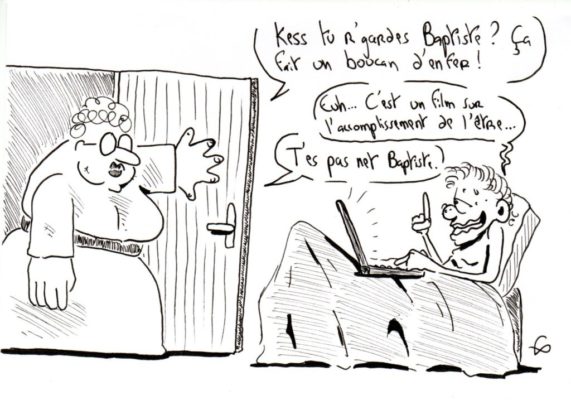 Kess tu r'gardes Baptiste ? Ça
fait un boucan d'enfer !
Euh... C'est un film sur
l'accomplissement de l'être...
T'es pas net Baptiste.